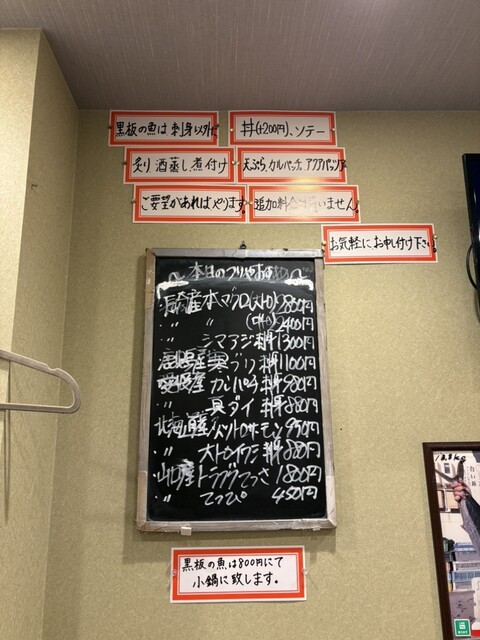 黒板の魚は刺身以外で
丼(+200円)、ソテー
炙り 酒蒸し 煮付け
天ぷら、カルパッチョ、アクアパッツァ
ご要望があればやります。
追加料金は頂いません。
お気軽にお申し付け下さい
本日のつりやおすすめ
長崎産 本マグロ(大トロ) 2800円
〃 〃 (中トロ) 2400円
〃 シマアジ刺 1300円
産寒ブリ刺 1100円
愛媛産 カンパチ刺 980円
〃 真ダイ刺 880円
北海道産 アトロサーモン 950円
〃 大トロイワシ刺 880円
山口産 トラフグてっさ 1800円
〃 てっぴ 450円
黒板の魚は800円にて
小鍋に致します。